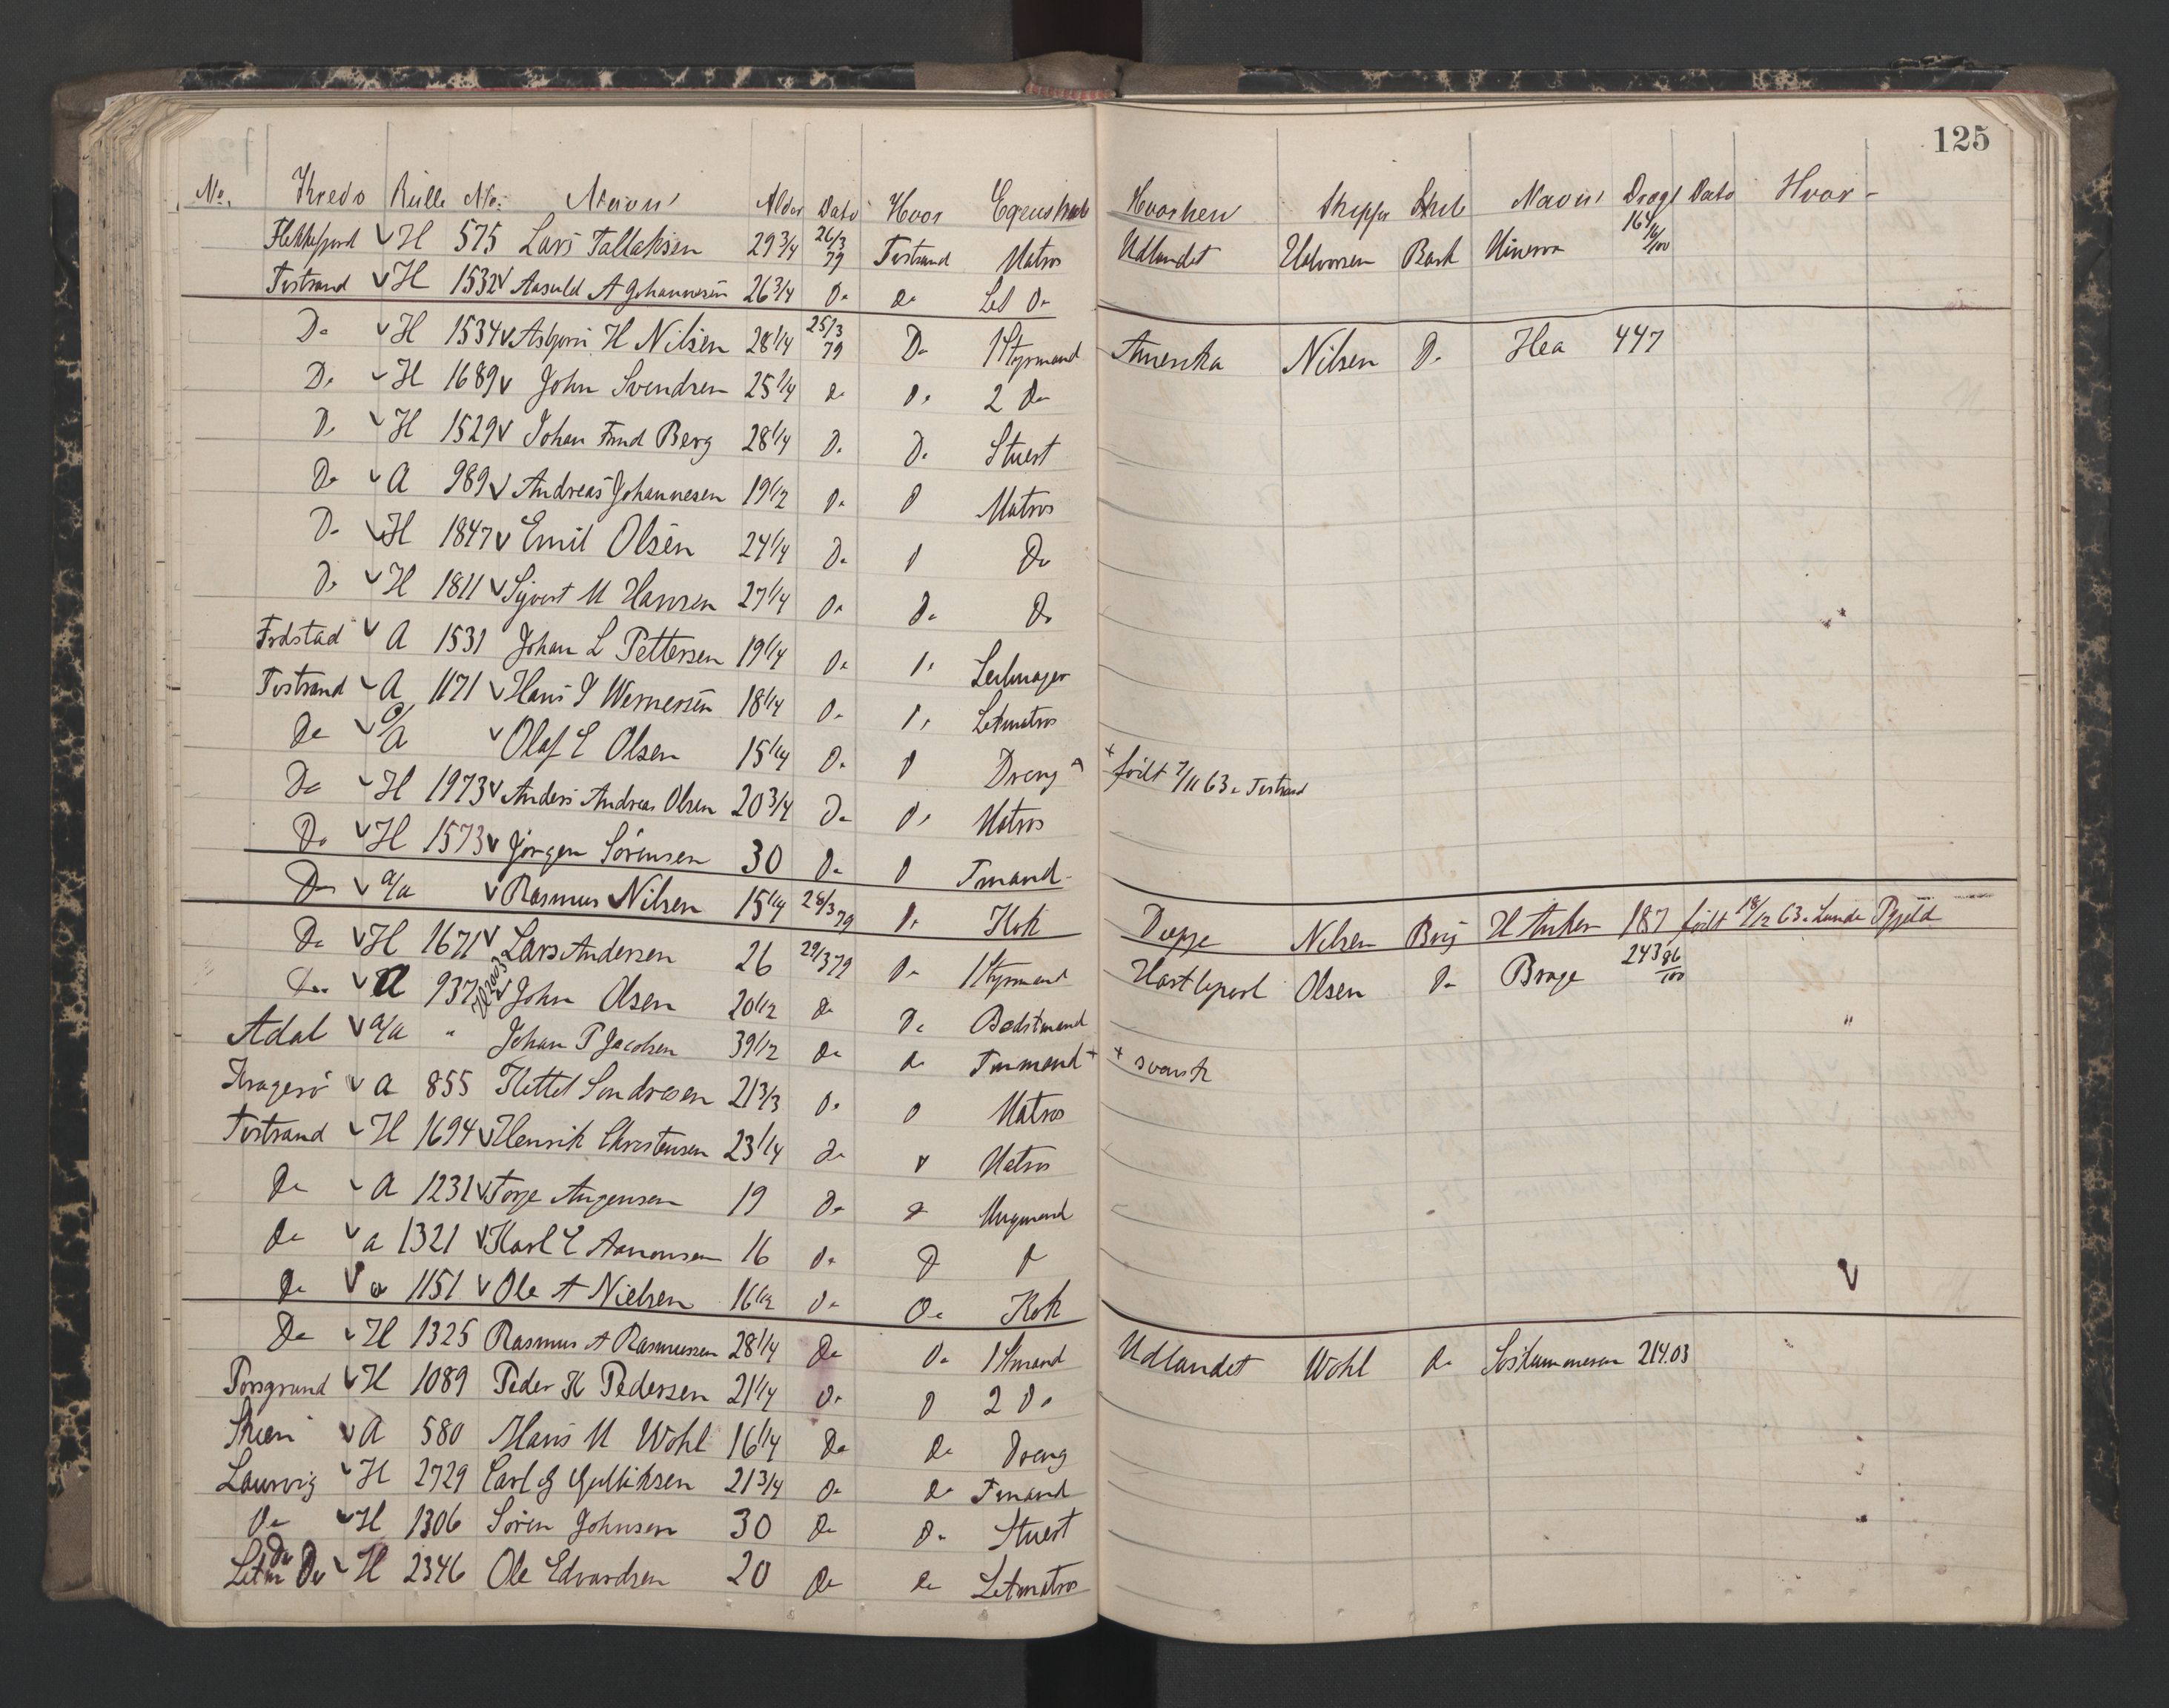 125
No. Kreds Rulle No. Navn Alder Dato Hvor Egenskab Hvorhen Skipper Skib Navn Drægt Dato Hvor
Flekkefjord H 575 Lars Tallaksen 29 3/4 26/3 79 Tvstrand Matros Udlandet Halvorsen Bark Minerva 164
Tvstrand H 1532 Aasuld A Johannesen 26 3/4 Do do Let Do
Do H 1534 Asbjørn H Nilsen 28 1/4 25/3 79 Do 1 Styrmand Amerika Nilsen Do Hea 447
Do H 1689 John Svendsen 25 1/4 do Do 2 Do
Do H 1529 Johan Fmd Berg 28 1/4 Do Do Stuert
Do A 989 Andreas Johannesen 19 1/2 Do D Matros
Do H 1847 Emil Olsen 24 1/4 Do D Do
Do H 1811 Sijvert M Hansen 27 1/4 Do Do Do
Frdstad A 1531 Johan L Pettersen 19 1/4 Do Do Seilmager
Tvstrand A 1171 Hans J Wernersen 18 1/4 Do Do Letmatros
Do a/a Olaf E Olsen 15 1/4 Do D Dreng + født 7/11 63 Tvstrand
Do H 1973 Anders Andreas Olsen 20 3/4 Do Do Matros
Do H 1573 Jörgen Sörensen 30 Do D Tmand
Do a/a Rasmus Nilsen 15 1/4 28/3 79 Do Kok Dieppe Nilsen Brig H Anker 187 født 18/12 63 Lunde
Do H 1671 Lars Andersen 26 29/3 79 Do 1 Styrmand Hartlepool Olsen Do Brage 243 86/100
Do A 937 John Olsen 20 1/2 do Do Bodstmand
Adal a/a " Johan P Jacobsen 39 1/2 do do Tmmand + + svensk
Kragerö A 855 Kettel Sondresen 21 3/3 Do D Matros
Tvstrand H 1694 Henrik Christensen 23 1/4 do Matros
Do A 1231 Torje Augensen 19 Do Ungmand
Do a 1321 Karl E Aanonsen 16 Do D D
Do a 1151 Ole A Nielsen 16 1/2 Do Do Kok
Do H 1325 Rasmus A Rasmussen 28 1/4 Do Do 1 Stmand Udlandet Wohl do 214.03
Porsgrund H 1089 Peder K Pedersen 21 1/4 Do D 2 Do
Skien A 580 Hans M Wohl 16 1/4 Do Do Dreng
Laurvig H 2729 Carl G Gulliksen 21 3/4 Do Do Tmand
Do H 1306 Sören Johnsen 30 Do Do Stuert
Letm Do H 2346 Ole Edvardsen 20 Do do Letmatros